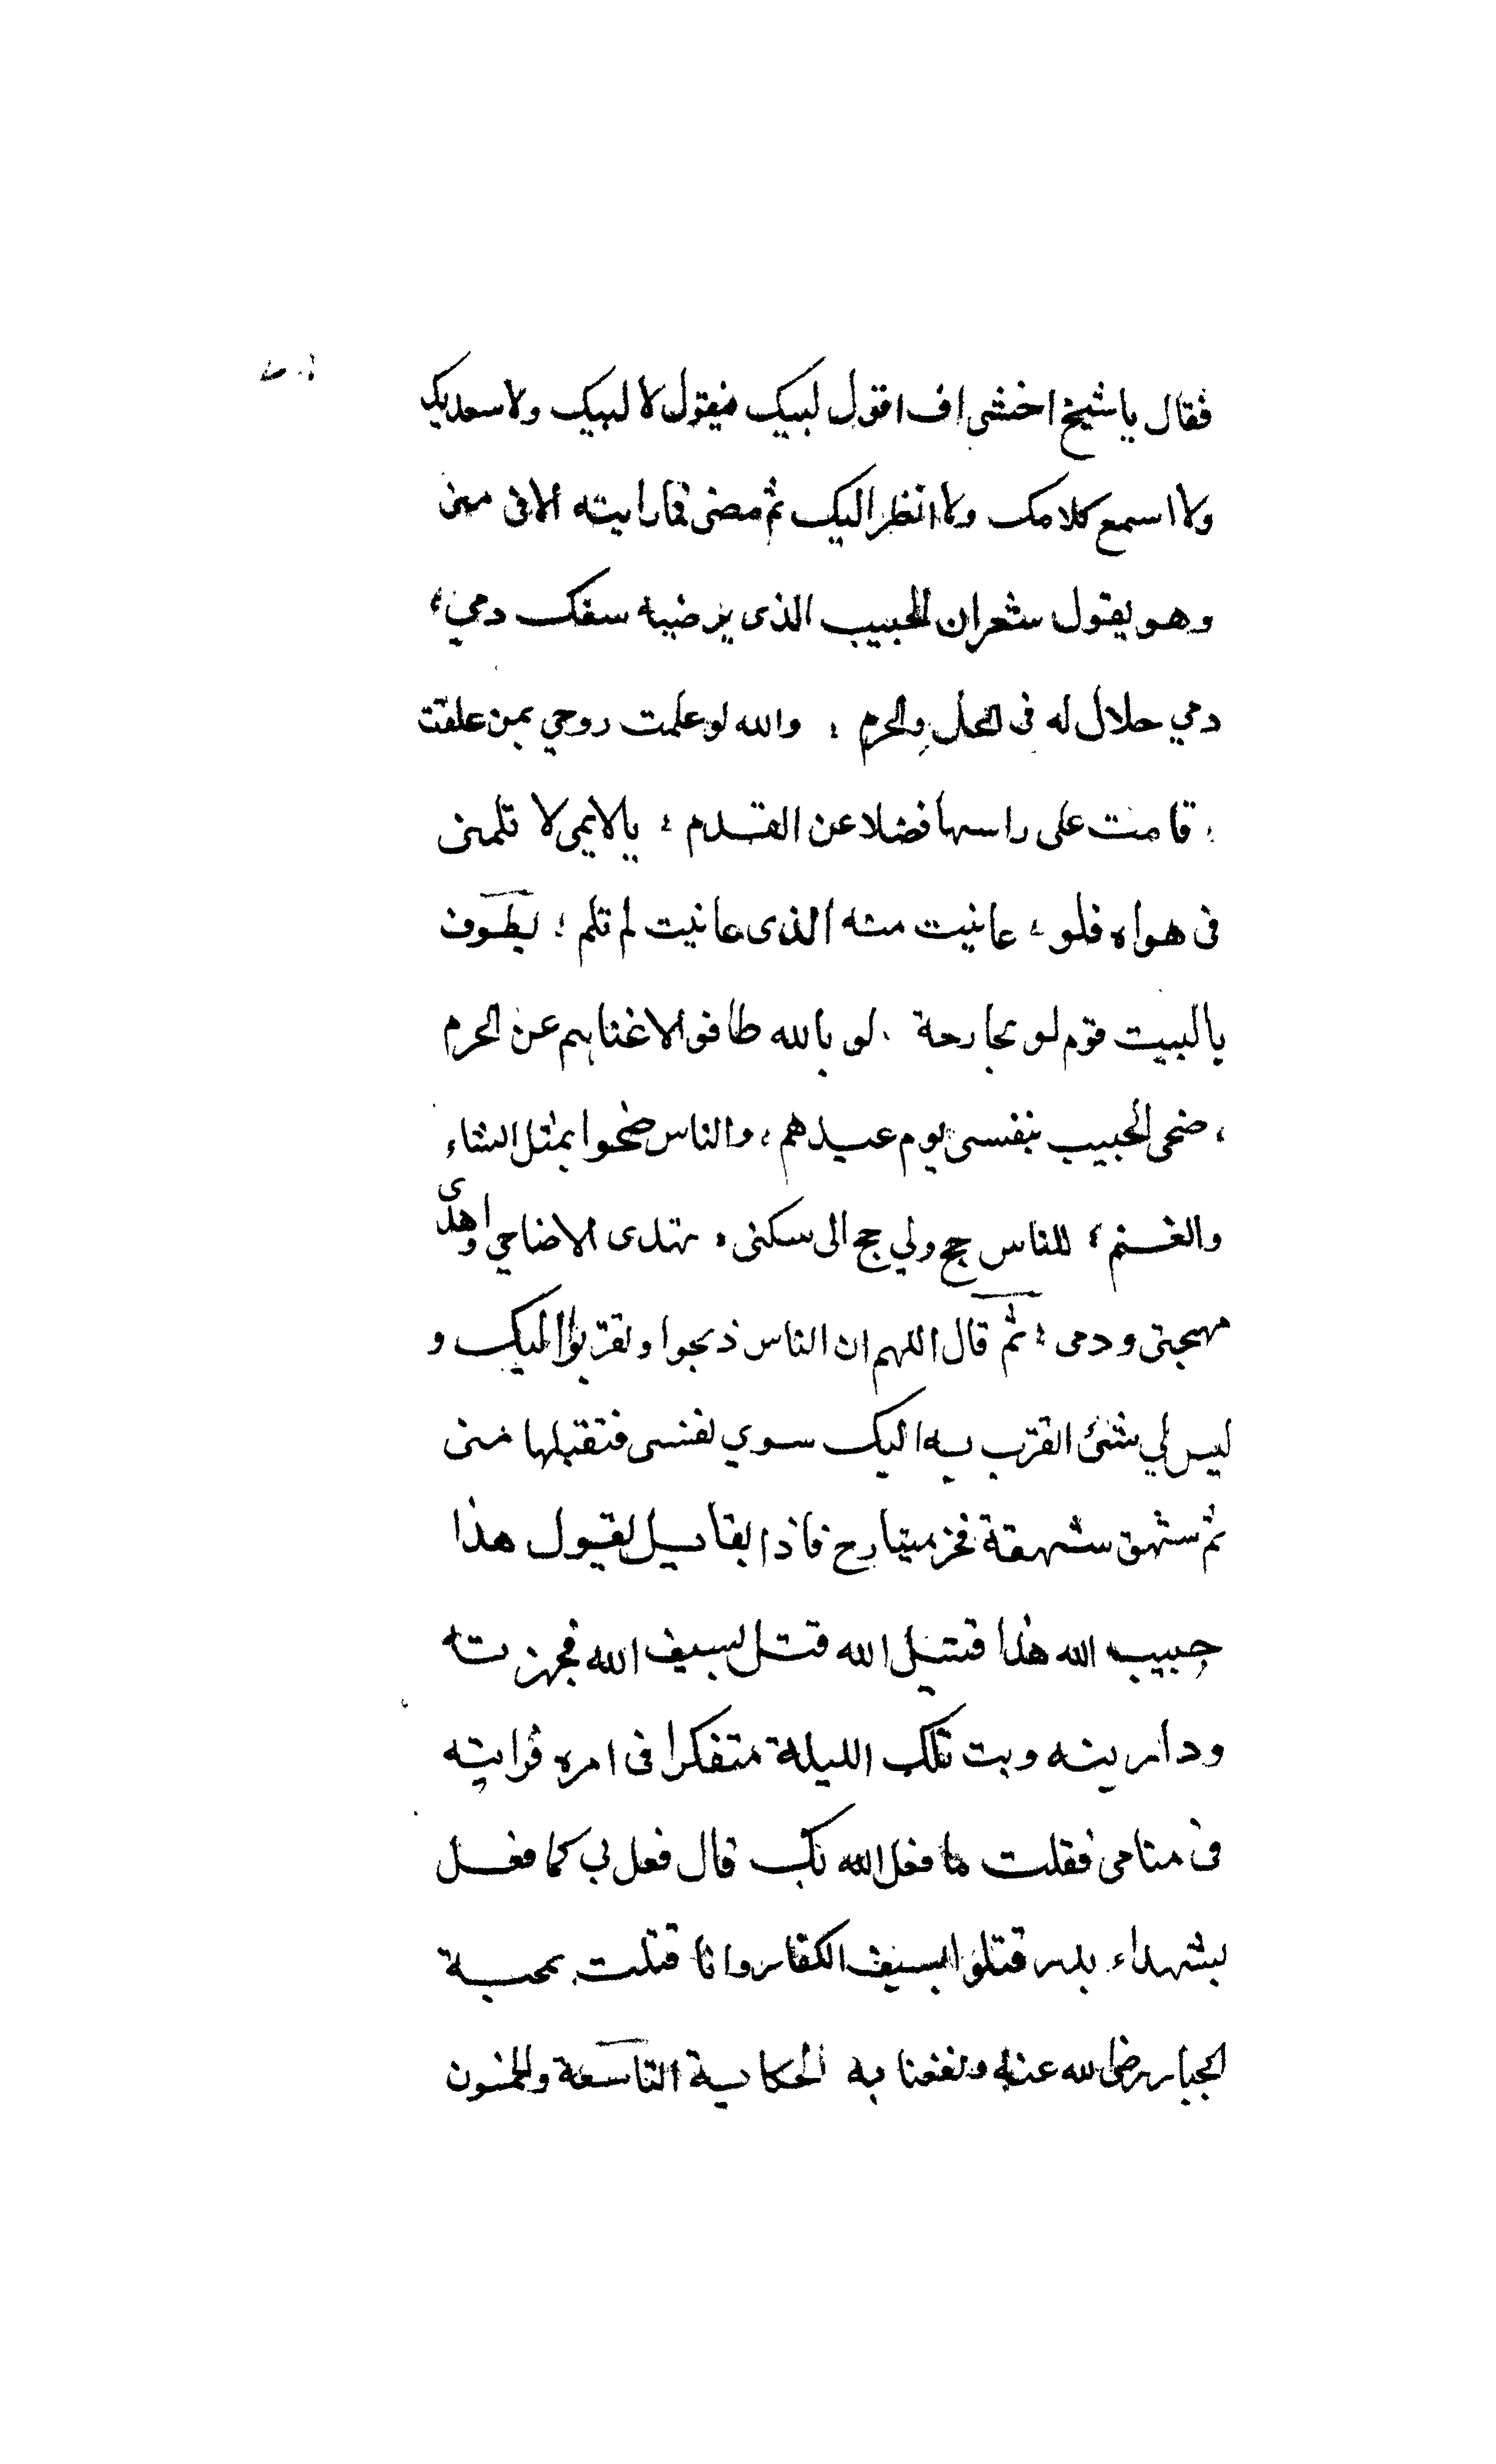 فقال يا شيخ اخشى ان اقول لبيك فيقول لا لبيك ولا سعديك
ولا اسمع كلامك ولا انظر اليك ثم مضى فما رايته الا فى منى
وهو يقول شعر ان الحبيب الذى يرضيه سفك دمي
دمي حلال له فى الحل والحرم ؛ والله لو علمت روحي بمن علقت
؛ قامت على راسها فضلا عن القدم ؛ يا لايمى لا تلمنى
فى هواه فلو ؛ عانيت منه الذى عانيت لم تلم ؛ يطوف
بالبيت قوم لو بجارحة ، لو بالله طافوا لاغناهم عن الحرم
، ضحى الحبيب بنفسى يوم عيدهم ، والناس ضحوا بمثل الشاء
والغنم ؛ للناس حج ولي حج الى سكنى ، تهدى الاضاحي واهدى
مهجتى ودمى ؛ ثم قال اللهم ان الناس ذبحوا وتقربوا اليك و
ليس لي شئ اتقرب به اليك سوي نفسى فتقبلها منى
ثم شهق شهقة فخر ميتا رح فاذا بقايل يقول هذا
حبيب الله هذا قتيل الله قتل بسيف الله فجهزته
وداريته وبت تلك الليلة متفكرا فى امره فرايته
فى منامى فقلت ما فعل الله بك قال فعل بي كما فعل
بشهداء بدر قتلوا بسيف الكفار وانا قتلت بمحبة
الجبار رضى الله عنه ونفعنا به الحكاية التاسعة والخمسون